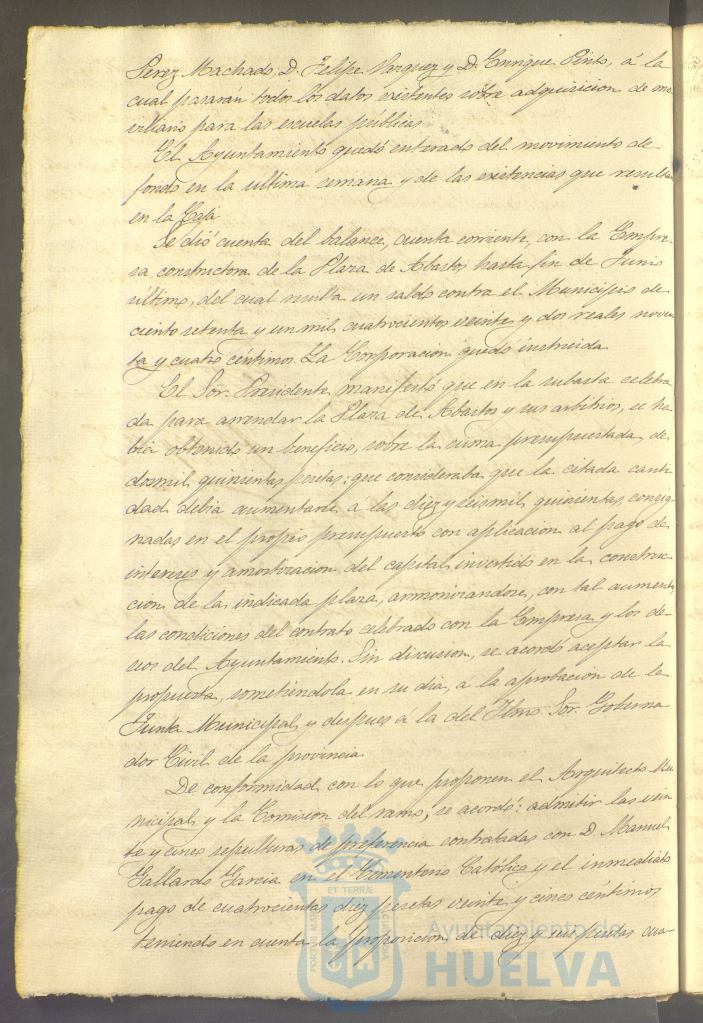 Perez Machado, D. Felipe Vazquez y D. Enrique Pinto, á la
cual pasarán todos los datos existentes sobre adquisicion de mo-
viliario para las escuelas publicas.
El Ayuntamiento quedó enterado del movimiento de
fondos en la ultima semana y de las existencias que resultan
en la Caja
Se dió cuenta del balance, cuenta corriente, con la Empre-
sa constructora de la Plaza de Abastos hasta fin de Junio
último, del cual resulta un saldo contra el Municipio de
ciento setenta y un mil cuatrocientos veinte y dos reales noven-
ta y cuatro céntimos. La Corporacion quedó instruida
El Sor. Presidente manifestó que en la subasta celebra-
da para arrendar la Plaza de Abastos y sus arbitrios, se ha-
bia obtenido un beneficio, sobre la suma presupuestada, de
dosmil quinientas pesetas: que consideraba que la citada canti-
dad debia aumentarse a las diez y seismil quinientas consig-
nadas en el propio presupuesto con aplicacion al pago de
intereses y amortizacion del capital invertido en la construc-
cion de la indicada plaza, armonizandose, con tal aumento,
las condiciones del contrato celebrado con la Empresa y los de-
seos del Ayuntamiento. Sin discusion, se acordó aceptar la
propuesta, sometiéndola en su dia, á la aprobacion de la
Junta Municipal y despues á la del Ilmo. Sor. Goberna
dor Civil de la provincia
De conformidad con lo que proponen el Arquitecto Mu-
nicipal y la Comision del ramo, se acordó: admitir las vein
te y cinco sepulturas de preferencia contratadas con D. Manuel
Gallardo Garcia en el Cementerio Católico y el inmediato
pago de cuatrocientas diez pesetas veinte y cinco céntimos
teniendo en cuenta la proporicion de diez y seis pesetas cua-
ET TERRÆ
Ayuntamiento de
HUELVA